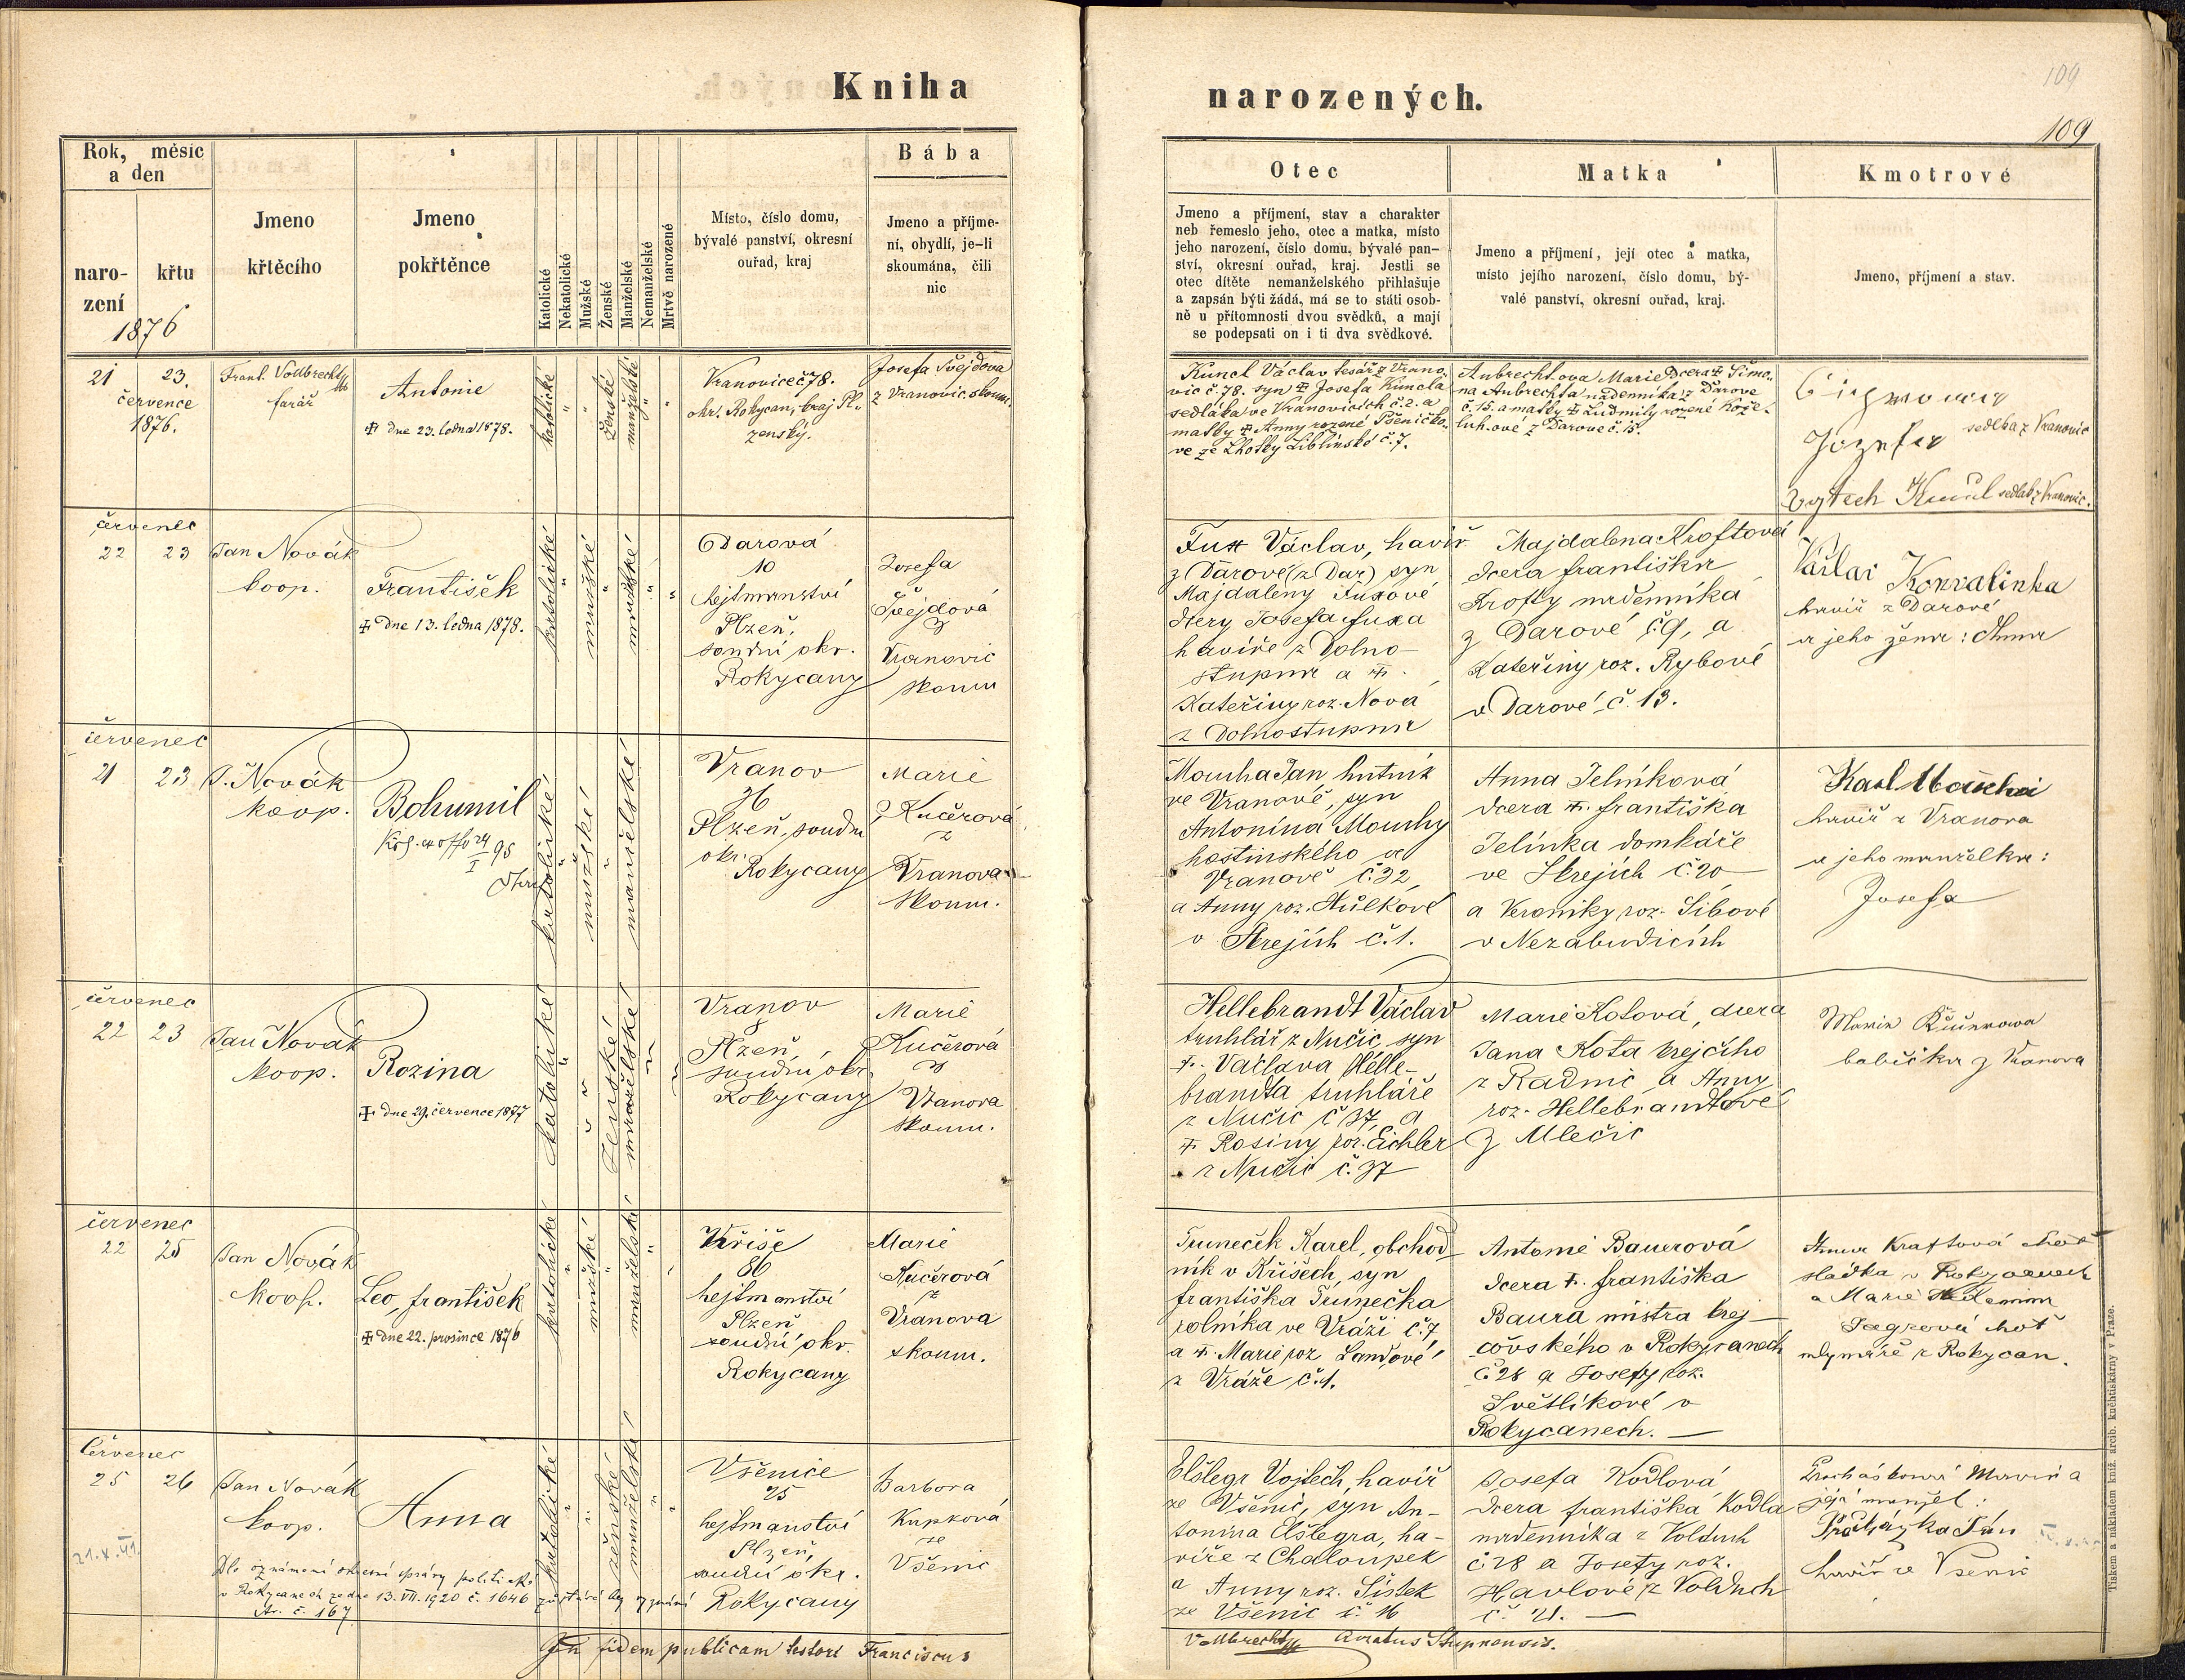 Kniha
narozených.
109
109
Rok, měsíc
a den
naro-
zení
křtu
1876
Jmeno
křtěcího
Jmeno
pokřtěnce
Katolické
Nekatolické
Mužské
Ženské
Manželské
Nemanželské
Mrtvě narozené
Místo, číslo domu,
bývalé panství, okresní
ouřad, kraj
Bába
Jmeno a příjme-
ní, obydlí, je-li
skoumána, čili
nic
Otec
Jmeno a příjmení, stav a charakter
neb řemeslo jeho, otec a matka, místo
jeho narození, číslo domu, bývalé pan-
ství, okresní ouřad, kraj. Jestli se
otec dítěte nemanželského přihlašuje
a zapsán býti žádá, má se to státi osob-
ně u přítomnosti dvou svědků, a mají
se podepsati on i ti dva svědkové.
Matka
Jmeno a příjmení, její otec a matka,
místo jejího narození, číslo domu, bý-
valé panství, okresní ouřad, kraj.
Kmotrové
Jmeno, příjmení a stav.
21 23.
července
1876.
Frant. Vollbrecht
farář
Antonie
✝ dne 23. ledna 1878.
katolické
ženské
manželské
Vranovice č 78.
okr. Rokycan, kraj Pl-
zenský.
Josefa Švejdova
z Vranovic. skoum.
Kuncl Václav tesař z Vrano-
vic č. 78. syn ✝ Josefa Kuncla
sedláka ve Vranovicích č. 2. a
matky ✝ Anny rozené Pšeničko-
ve ze Lhotky Liblínské č. 7.
Aubrechtova Marie Dcera ✝ Šimo-
na Aubrechta nádenníka z Darove
č. 15. a matky ✝ Ludmily rozené Kože-
luhové z Darove č. 15.
Josefa
sedlka z Vranovic
Vojtech Kuncl sedlák z Vranovic.
červenec
22 23
Jan Novák
koop.
František
✝ Dne 13. ledna 1878.
katolické
mužské
manželské
Darová
10
hejtmanství
Plzeň,
soudní okr.
Rokycany
Josefa
Švejdová
z
Vranovic
skoum
Fux Václav, havíř
z Darové (z Dar) syn
Majdaleny Fuxové
dcery Josefa Fuxa
havíře z Dolno-
stupna a ✝.
Kateřiny roz. Nová
z Dolnostupna
Majdalena Kroftová
dcera františka
Krofty nádenníka
z Darové č. 9, a
Kateřiny roz. Rybové
v Darové č. 13.
Václav Konvalinka
havíř z Darové
a jeho žena: Anna
červenec
21 23
J. Novák
koop.
Bohumil
katolické
mužské
manželské
Vranov
36
Plzeň, soudní
okr.
Rokycany
Marie
Kučerová
z
Vranova
skoum.
Moucha Jan hutník
ve Vranově, syn
Antonína Mouchy
hostinského ve
Vranově č. 32,
a Anny roz. Hůlkové
v Skrejích č. 1.
Anna Jelínková
dcera ✝. františka
Jelínka domkáře
ve Skrejích č. 20
a Veroniky roz. Sibové
v Nezabudicích
Karl Moucha
havíř z Vranova
a jeho manželka:
Josefa
červenec
22 23
Jan Novák
koop.
Rozina
✝ dne 29. července 1877
katolické
ženské
manželské
Vranov
8
Plzeň,
soudní okr.
Rokycany
Marie
Kučerová
z
Vranova
skoum.
Hellebrandt Václav
truhlář z Nučic, syn
✝. Václava Helle-
brandta truhláře
z Nučic č 37, a
✝ Rosiny roz. Eichler
z Nučic č. 37
Marie Kotová, dcera
Jana Kota krejčího
z Radnic a Anny
roz. Hellebrandtové
z Mlečic
Marie Kučerowa
babička z Vranova
červenec
22 25
Jan Novák
koop.
Leo, františek
✝ dne 22. prosince 1876
katolické
mužské
manželské
Kříše
86
hejtmanství
Plzeň
soudní okr.
Rokycany
Marie
Kučerová
z
Vranova
skoum.
Truneček Karel, obchod-
ník v Kříšech, syn
františka Trunečka
rolníka ve Vráži č. 7,
a ✝. Marie roz Landové
z Vráže č. 1.
Antonie Bauerová
dcera ✝. františka
Baura mistra krej-
čovského v Rokycanech
č 28 a Josefy roz.
Světlíkové v
Rokycanech. —
Anna Kraftová choť
sládka v Rokycanech
a Marie
choť
mlynáře z Rokycan.
Červenec
25 26
Jan Novák
koop.
Anna
katolické
ženské
manželské
Všenice
25
hejtmanství
Plzeň,
soudní okr.
Rokycany
Barbora
Kupková
ze
Všenic
Elšlegr Vojtěch, havíř
ze Všenic, syn An-
tonína Elšlegra, ha-
víře z Chaloupek
a Anny roz. Šístek
ze Všenic č. 16
Josefa Kodlová
dcera františka Kodla
nádenníka z Volduch
č 28 a Josefy roz.
Havlové z Volduch
č. 21. —
Procházková Marie a
její manžel:
Procházka Ján
havíř ze Všenic
21. X. 41.
Dle oznámení okresní správy politické
v Rokycanech ze dne 13. VII. 1920 č. 1646 zůstává bez vyznání
In fidem publicam testor Franciscus
Vollbrecht Curatus Stupnensis.
Tiskem a nákladem kníž. arcib. knihtiskárny v Praze.